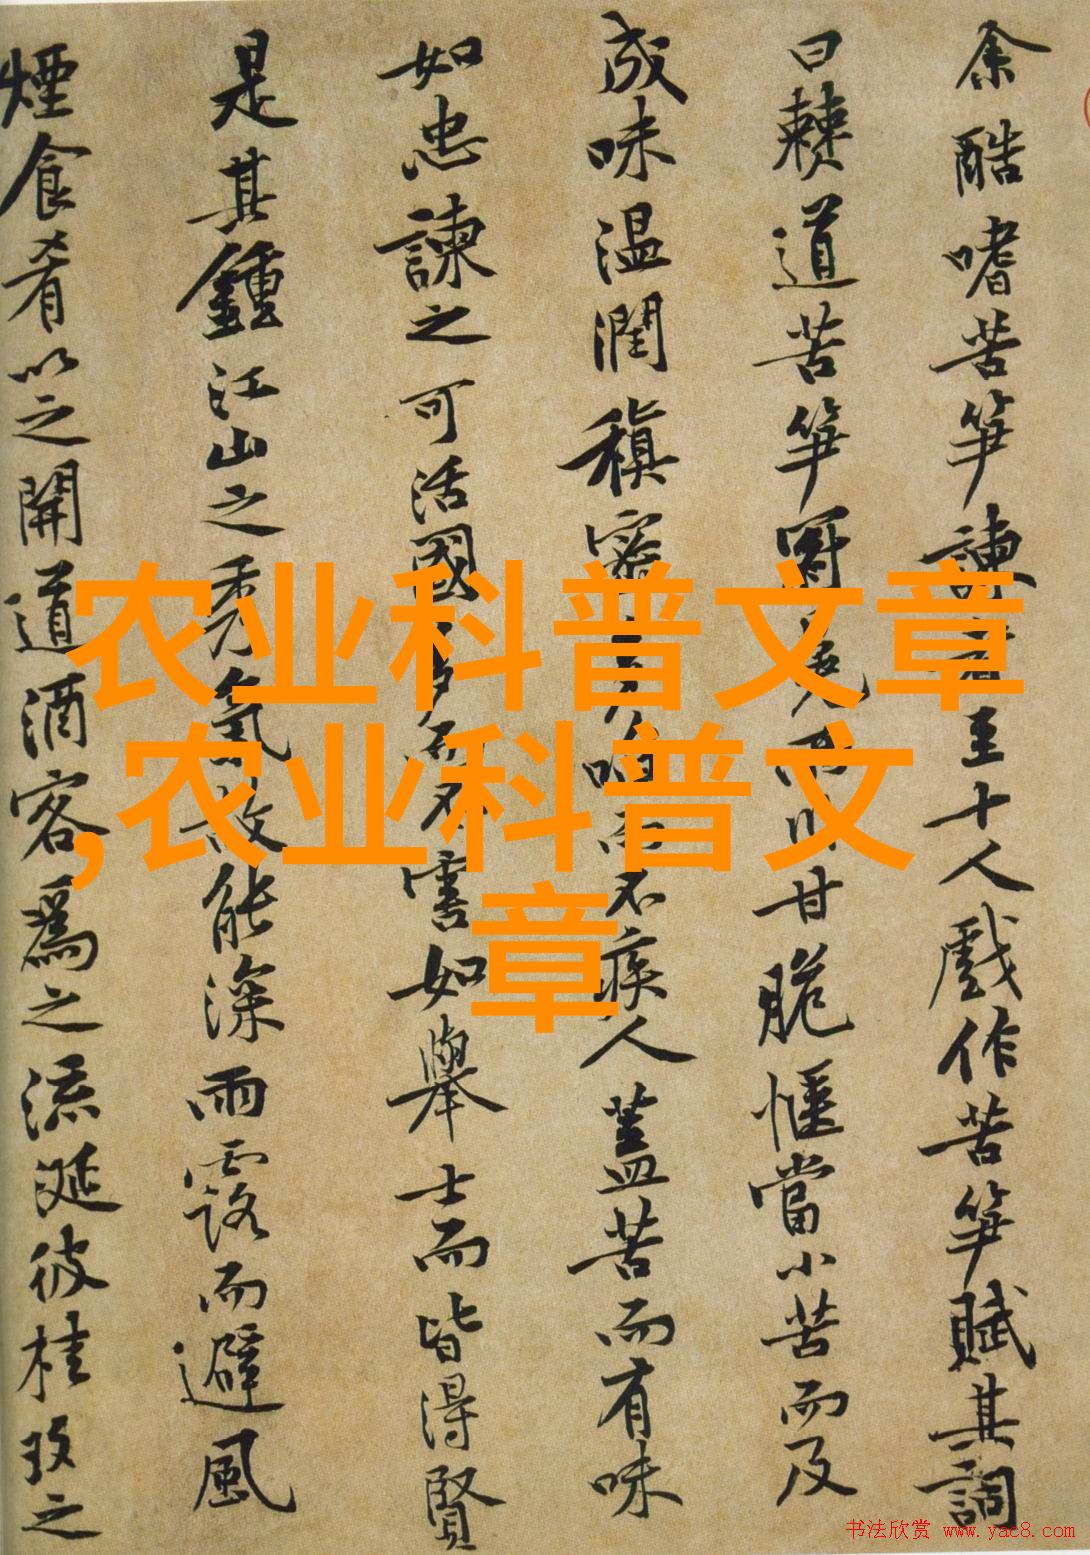 余酷嗜苦笋諫者至十人戲作苦笋賦其詞
曰僰道苦笋冠冕兩川甘脆愜當小苦而及
成味温潤稹密多啗而不疾人蓋苦而有味
如忠諫之可活國多而不害如舉士而皆得賢
是其鍾江山之秀氣故能深雨露而避風
煙食肴以之開道酒客爲之流涎彼桂玫之
农业科普文章
,农业科普文
章
书法欣赏 www.yac8.com